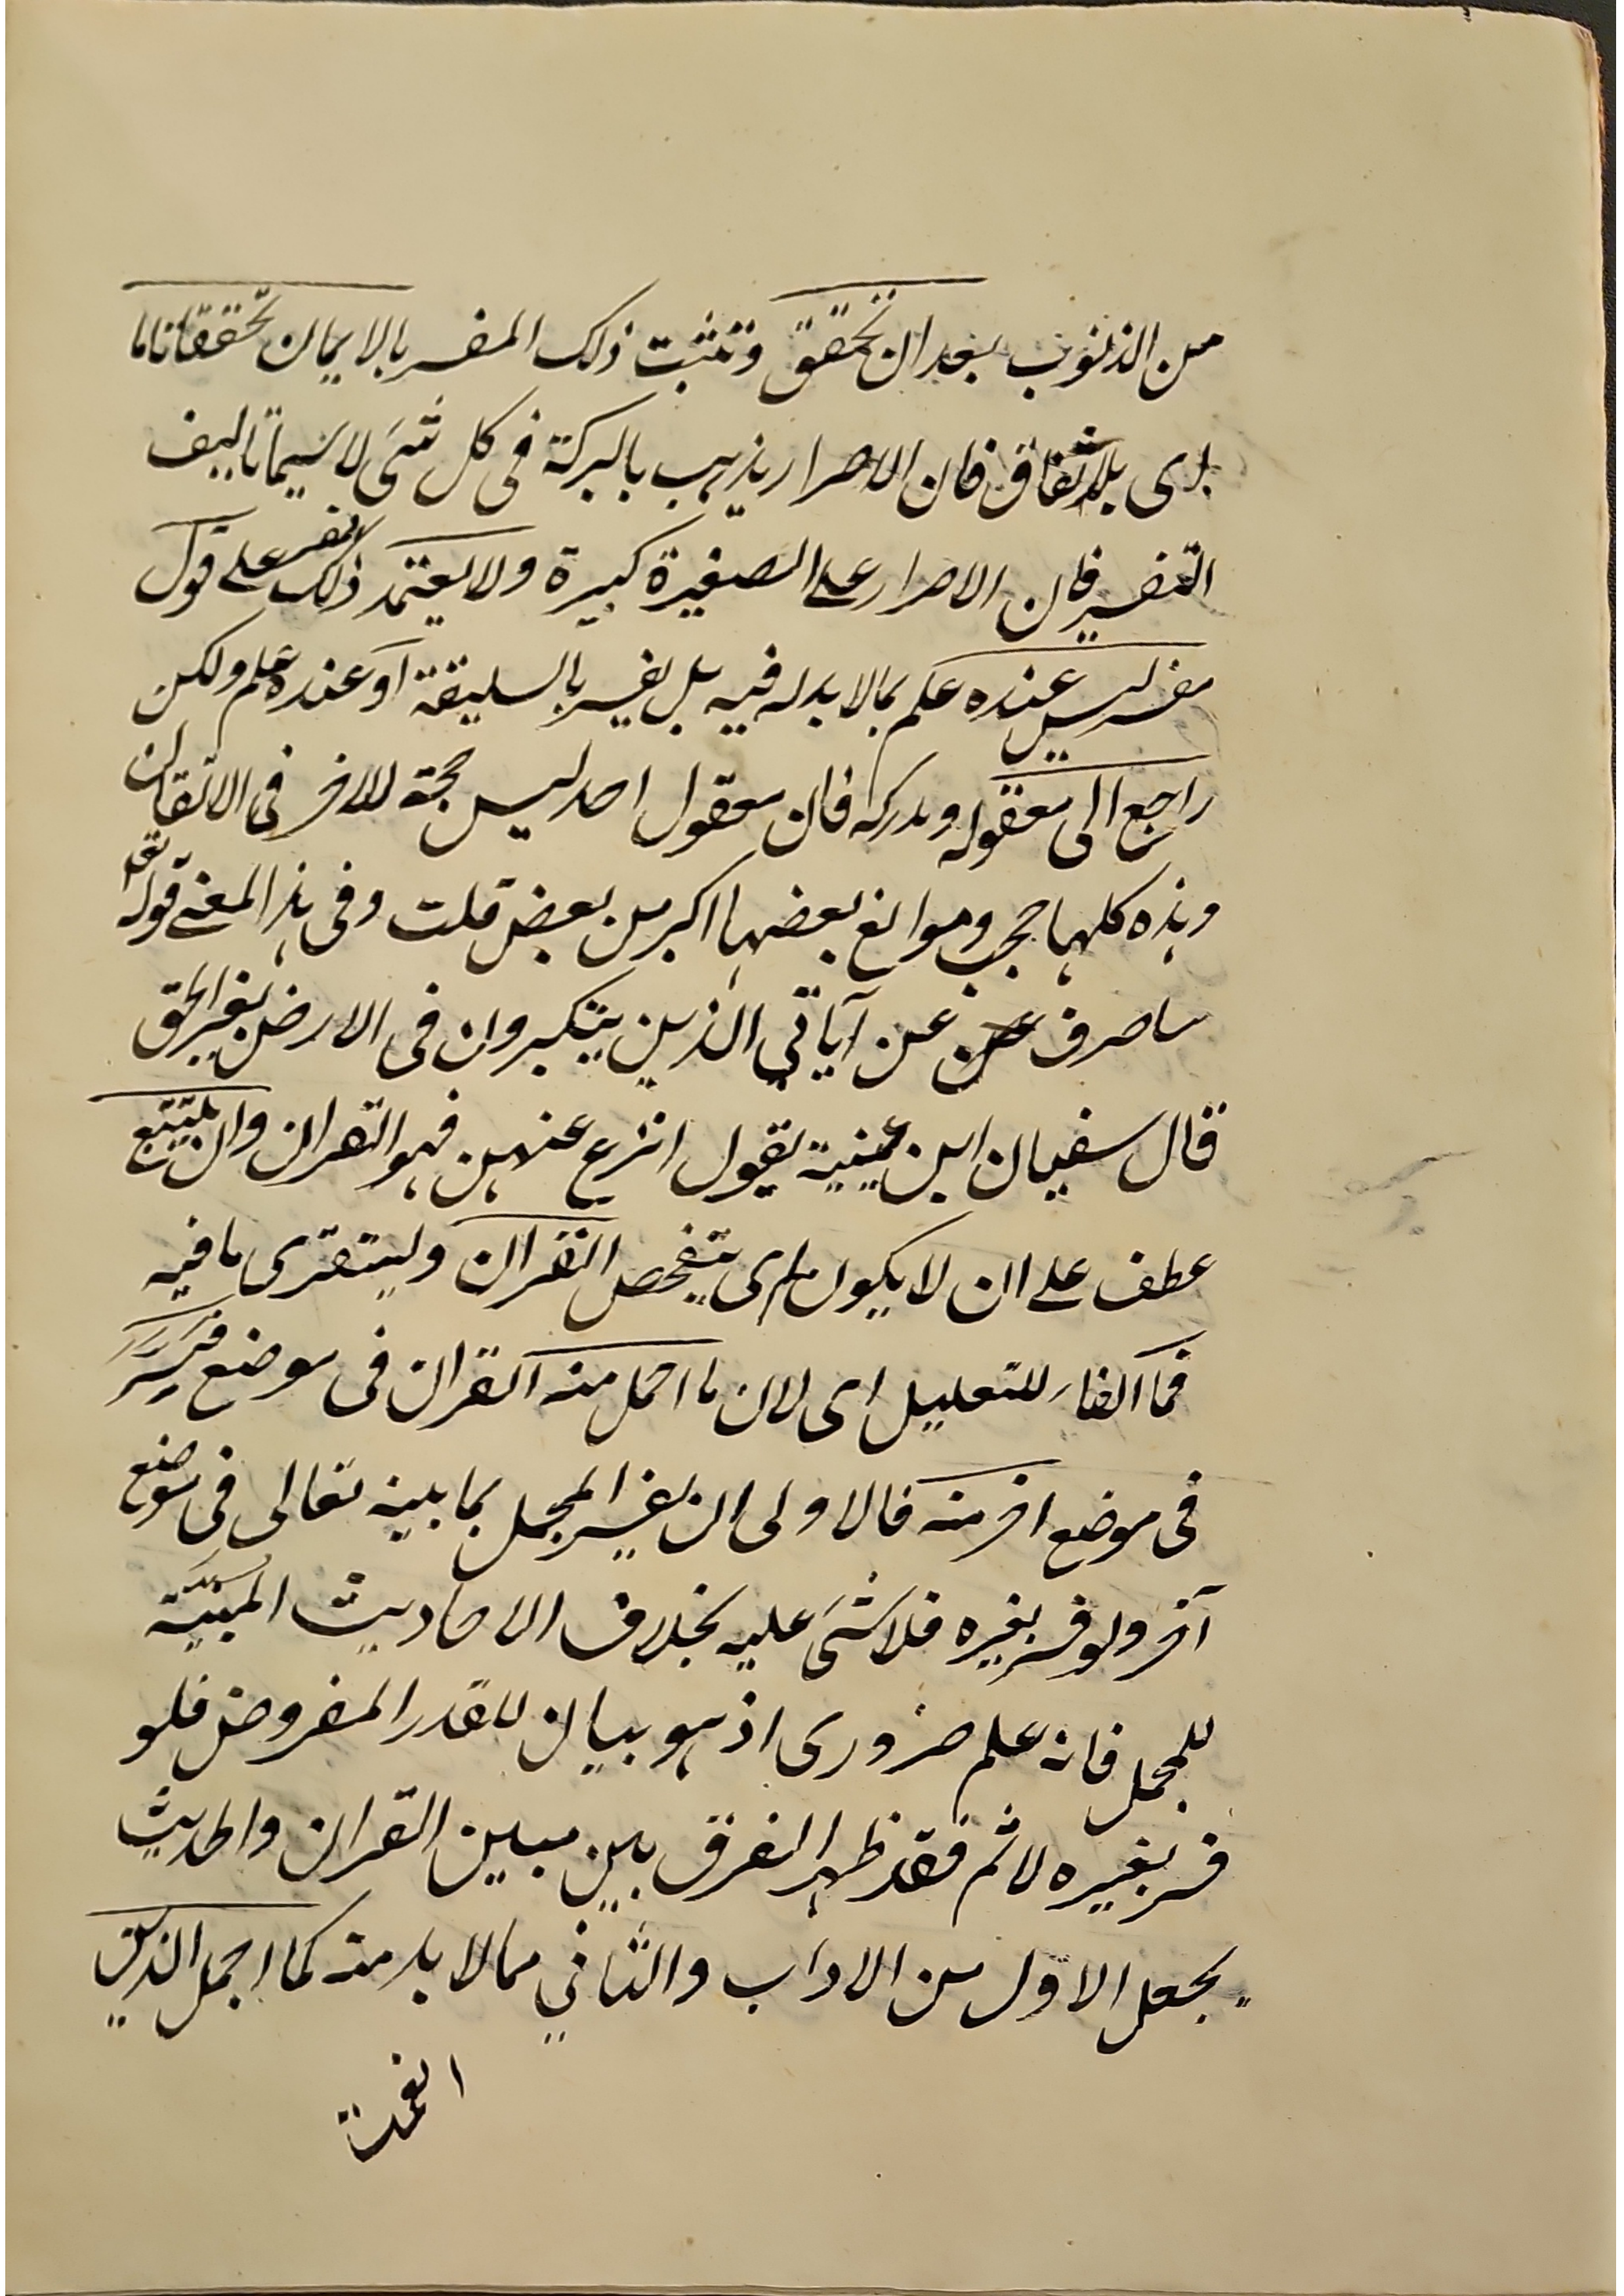 من الذنوب بعد ان تحقق وتثبت ذلك المفسر بالايمان تحققا تاما
اى بلا شقاق فان الاصرار يذهب بالبركة فى كل شئ لا سيما تاليف
التفسير فان الاصرار على الصغيرة كبيرة ولا يعتمد ذلك المفسر على قول
مفسر ليس عنده علم بما لا بد له فيه بل يفسر بالسليقة او عنده علم ولكن
راجع الى معقوله ومدركه فان معقول احد ليس حجة للاخر فى الاتقان
وهذه كلها حجب وموانع بعضها اكبر من بعض قلت وفى هذا المعنى قوله تعالى
ساصرف عن آياتي الذين يتكبرون فى الارض بغير الحق
قال سفيان ابن عيينة يقول انزع عنهم فهم القران وان يتتبع
عطف على ان لا يكون اى يتفحص القران ويستقرى ما فيه
فما الفاء للتعليل اى لان ما اجمل منه القران فى موضع فسر
فى موضع اخر منه فالاولى ان يفسر المجمل بما بينه تعالى فى موضع
آخر ولو فسر بغيره فلا شئ عليه بخلاف الاحاديث المبينة
للمجمل فانه علم ضرورى اذ هو بيان للقدر المفروض فلو
فسر بغيره لاثم فقد ظهر الفرق بين مبين القران والحديث
بجعل الاول من الاداب والثاني مما لا بد منه كما اجمل الذين
انعمت